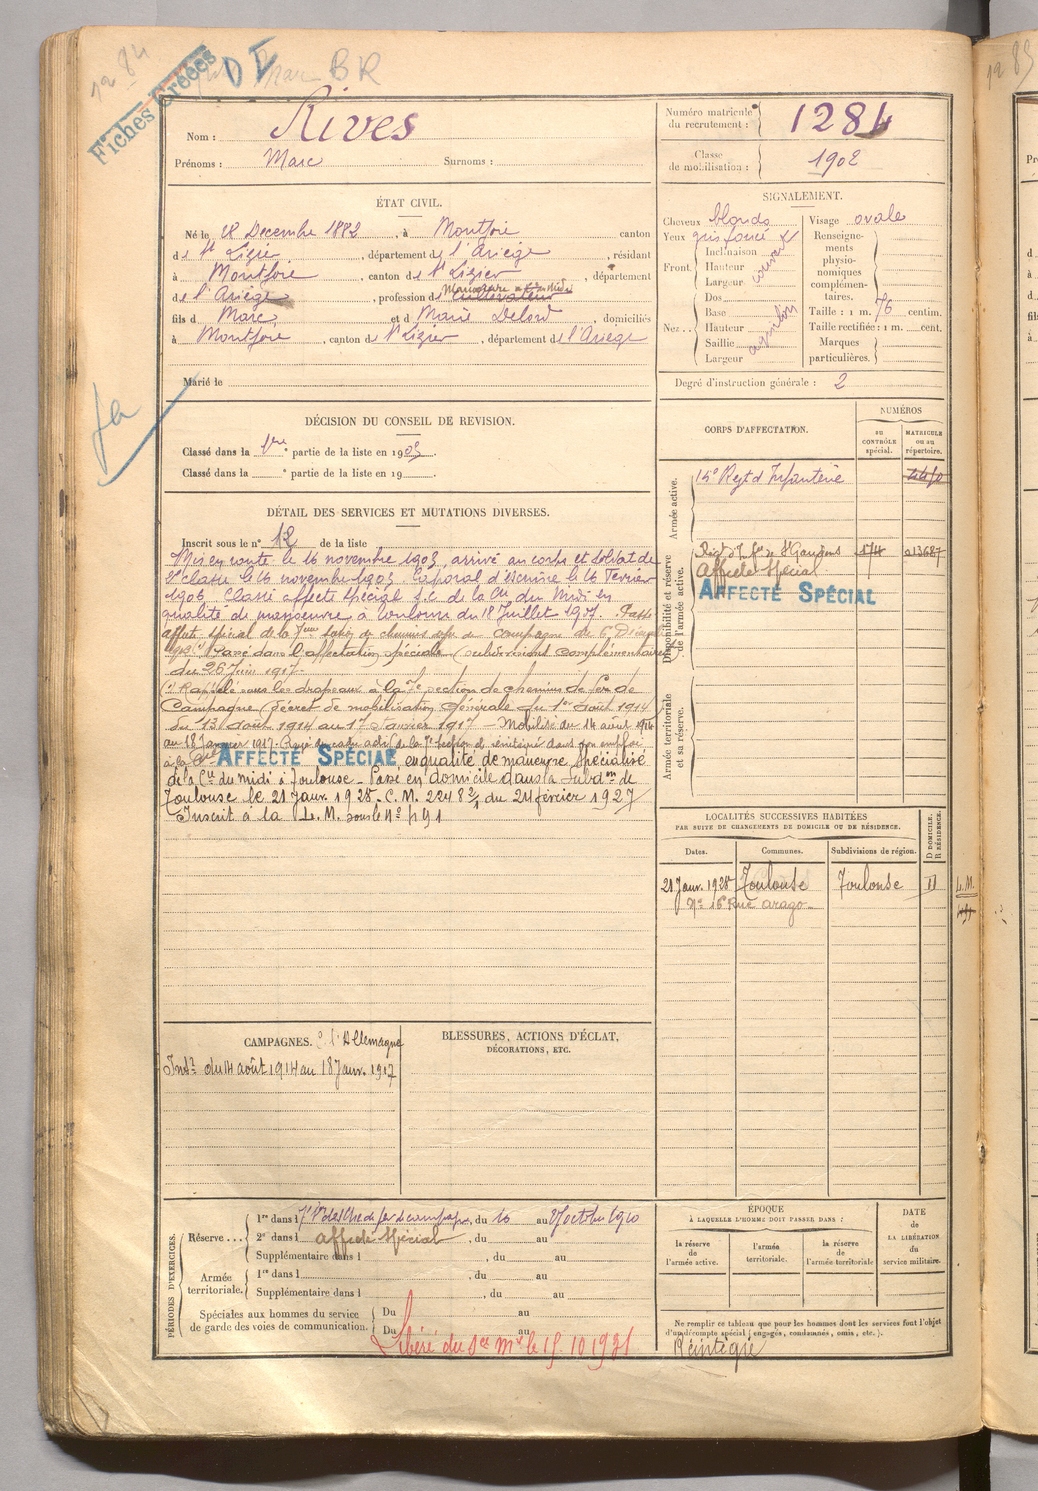 1284
Fiches Créées
DI Marc BR
Nom : Rives
Prénoms : Marc Surnoms :
Numéro matricule du recrutement : 1284
Classe de mobilisation : 1902
ÉTAT CIVIL.
Né le 28 Decembre 1882, à Montjoie canton
de St Lizier, département de l'Ariège, résidant
à Montjoie, canton de St Lizier, département
de l'Ariège, profession de cultivateur
fils de Marc et de Marie Delord, domiciliés
à Montjoie, canton de St Lizier, département de l'Ariège
Marié le
SIGNALEMENT.
Cheveux blonds
Yeux gris foncé
Front Inclinaison
Hauteur
Largeur
couvert
Nez Dos
Base
Hauteur
Saillie
Largeur
aquilin
Visage ovale
Renseignements physionomiques complémentaires.
Taille : 1 m. 76 centim.
Taille rectifiée : 1 m. cent.
Marques particulières.
Degré d'instruction générale : 2
DÉCISION DU CONSEIL DE REVISION.
Classé dans la 1re partie de la liste en 1903.
Classé dans la ° partie de la liste en 19
CORPS D'AFFECTATION.
NUMÉROS
au CONTRÔLE spécial.
MATRICULE ou au répertoire.
Armée active.
14e Regt d'Infanterie
Disponibilité et réserve de l'armée active.
Regt d'Infie de St Gaudens 174 013687
Affecté Spécial
AFFECTÉ SPÉCIAL
Armée territoriale et sa réserve.
DÉTAIL DES SERVICES ET MUTATIONS DIVERSES.
Inscrit sous le n° 12 de la liste
Mis en route le 16 novembre 1903, arrivé au corps et soldat de
2e classe le 16 novembre 1903. Caporal d'escrime le 26 Fevrier
1906. Classé affecté spécial S.C. de la Cie du Midi en
qualité de manoeuvre à Toulouse du 18 Juillet 1907. Passé
affecté spécial de la 7eme section de chemins de fer de campagne
(1) Passé dans l'affectation spéciale (subdivision complémentaire)
du 26 Juin 1917
(1) Rappelé sous les drapeaux à la 7e section de chemins de fer de
Campagne (décret de mobilisation générale du 1er août 1914
du 13 août 1914 au 17 Janvier 1917 - Mobilisé du 14 août 1914
au 18 Janvier 1917. Rayé du cadre actif de la 7e section et réintégré dans son emploi
à la Cie AFFECTÉ SPÉCIAL en qualité de manoeuvre spécialisé
de la Cie du midi à Toulouse - Passé en domicile dans la subdon de
Toulouse le 21 Janv. 1925. C.M. du 24 février 1927
Inscrit à la L.M. sous le N° 491
LOCALITÉS SUCCESSIVES HABITÉES
PAR SUITE DE CHANGEMENTS DE DOMICILE OU DE RÉSIDENCE.
Dates. Communes. Subdivisions de région. D DOMICILE. R RÉSIDENCE.
21 Janv. 1925 Toulouse Toulouse D
N° 16 Rue Arago
L.M.
491
CAMPAGNES. C. l'Allemagne
Intr du 14 août 1914 au 18 Janv. 1917
BLESSURES, ACTIONS D'ÉCLAT,
DÉCORATIONS, ETC.
PÉRIODES D'EXERCICES.
Réserve... 1re dans l 7e Son de Che de fer de campagne, du 10 au 27 octobre 1910
2e dans l affecté spécial, du au
Supplémentaire dans l, du au
Armée territoriale. 1re dans l, du au
Supplémentaire dans l, du au
Spéciales aux hommes du service de garde des voies de communication. Du au
Du au
Libéré du Sce Mre le 15.10.1931
ÉPOQUE
À LAQUELLE L'HOMME DOIT PASSER DANS :
la réserve de l'armée active.
l'armée territoriale.
la réserve de l'armée territoriale
DATE DE LA LIBÉRATION du service militaire.
Ne remplir ce tableau que pour les hommes dont les services font l'objet
d'un décompte spécial (engagés, condamnés, omis, etc.).
Réintégré